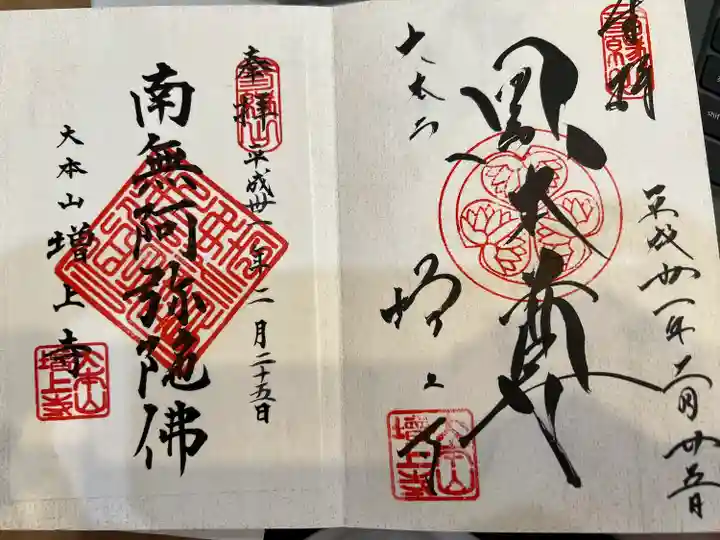 奉拝
平成卅一年二月廿五日
黒本尊
大本山
増上寺
増上寺
奉拝
平成卅一年二月二十五日
南無阿弥陀佛
大本山 増上寺
大本山
増上寺